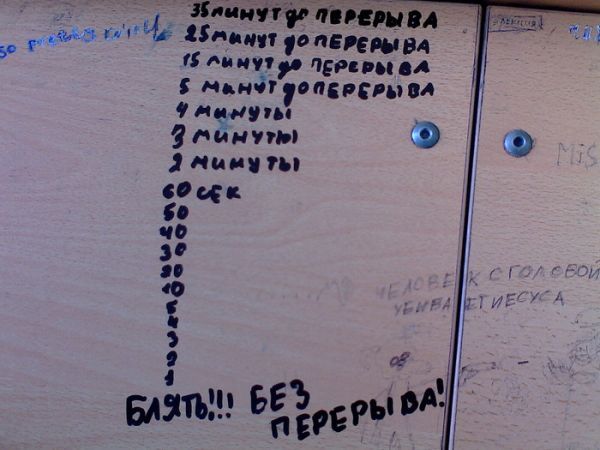 35 минут до ПЕРЕРЫВА
25 минут до ПЕРЕРЫВА
15 минут до ПЕРЕРЫВА
5 минут до ПЕРЕРЫВА
4 минуты
3 минуты
2 минуты
60 сек
50
40
30
20
10
5
4
3
2
1
БЛЯТЬ!!! БЕЗ
ПЕРЕРЫВА!
50
MiS
ЧЕЛОВЕК С ГОЛОВОЙ
УБИВАЕТ ИЕСУСА